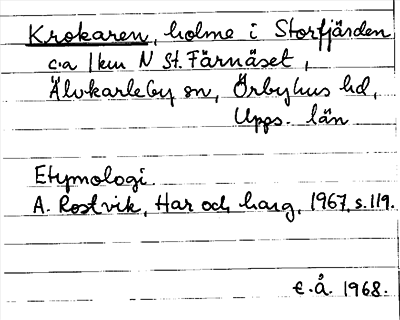 Krokaren, holme i Storfjärden
c:a 1 km N St. Färnäset,
Älvkarleby sn, Örbyhus hd,
Upps. län
Etymologi.
A. Rostvik, Har och harg, 1967, s. 119.
€.å. 1968.